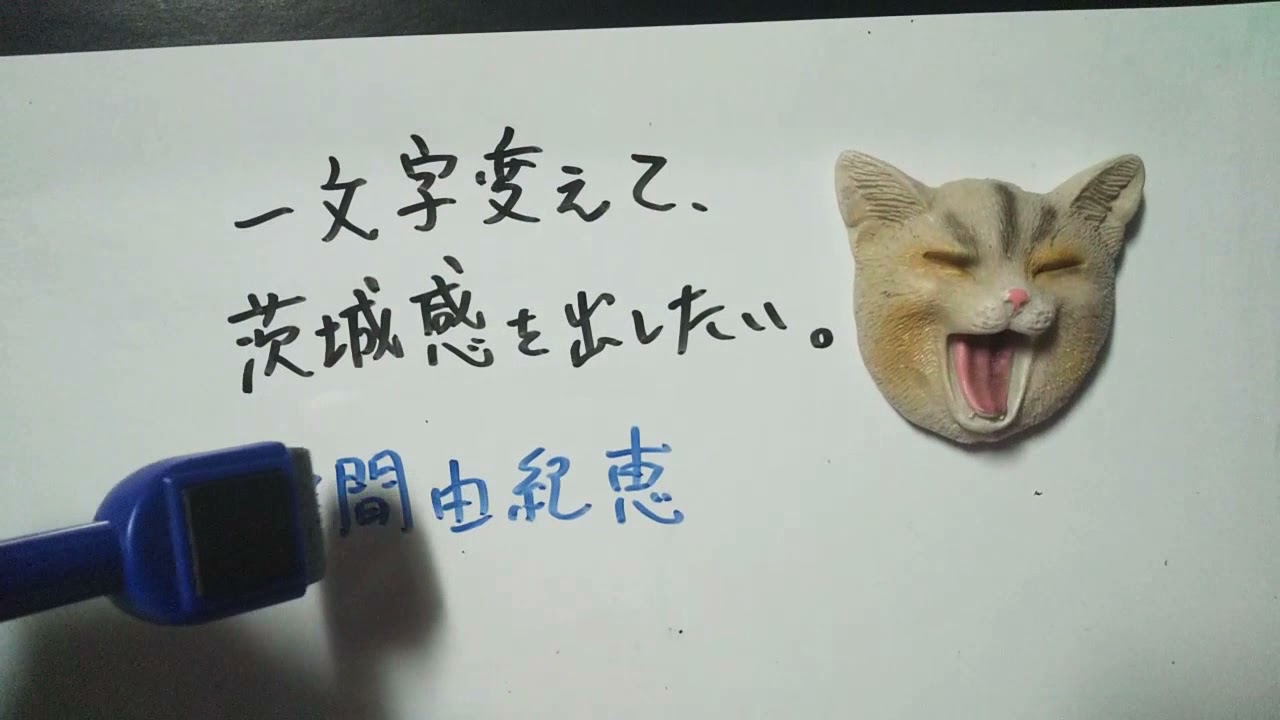 一文字変えて、
茨城感を出したい。
間由紀恵